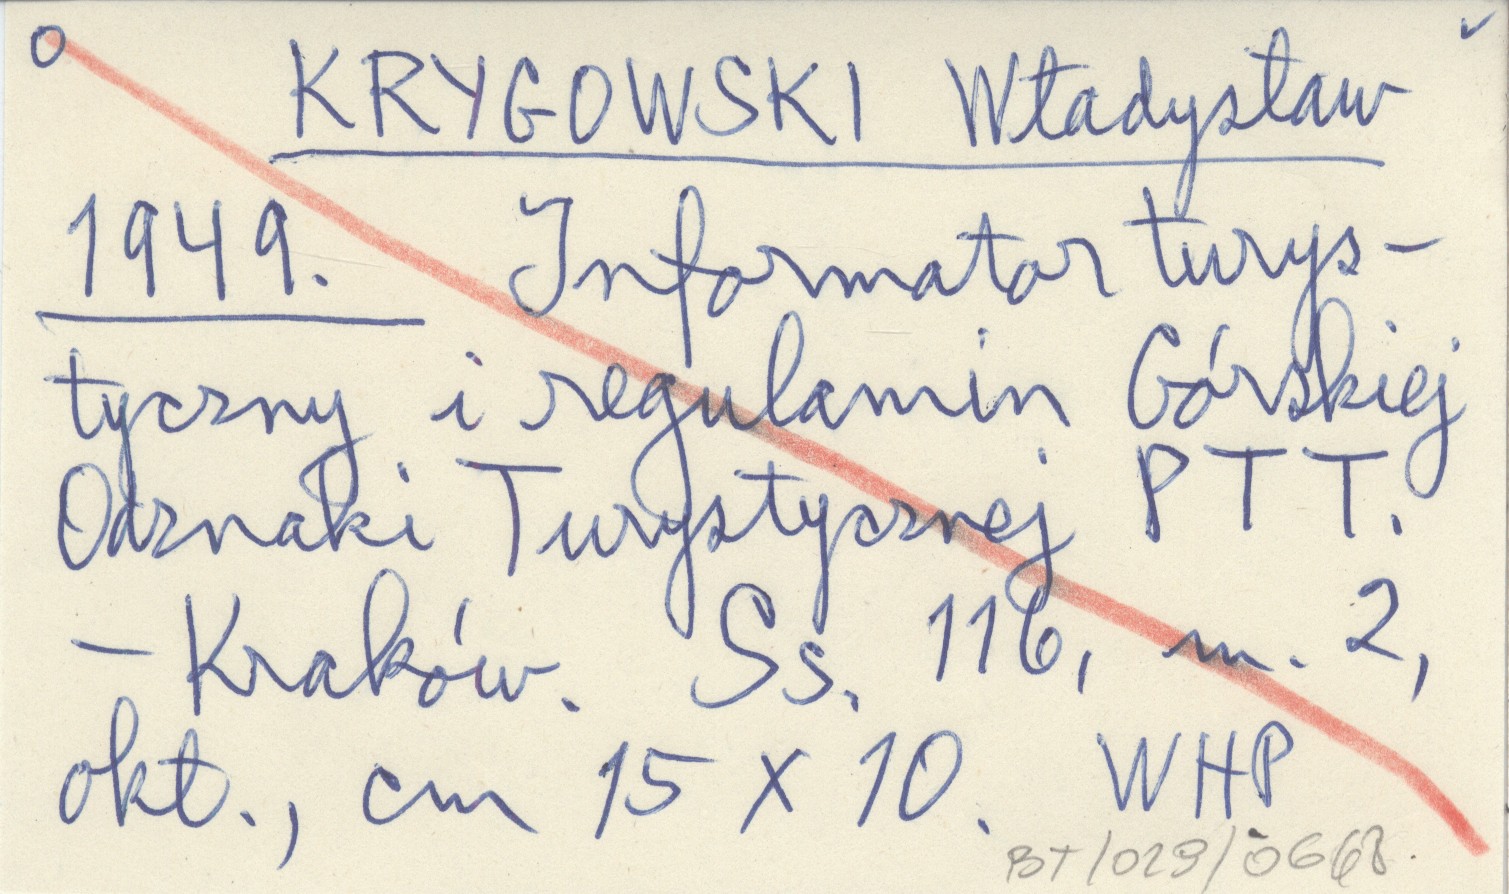 KRYGOWSKI Władysław
1949. Informator turys-
tyczny i regulamin Górskiej
Odznaki Turystycznej PTT.
- Kraków. Ss. 116, m. 2,
okł., cm 15 x 10. WHP
BT/029/0668